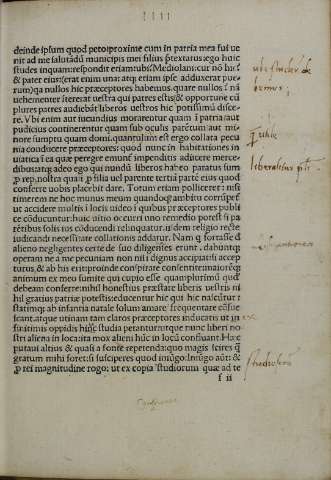 deinde ipsum quod peto: proxime cum in patria mea fui ue
nit ad me salutādū municipis mei filius p̄textatus: ego huic
studes inquam: respondit etiam: ubi? Mediolani: cur nō hic?
& pater eius: (erat enim una: atq; etiam ipse adduxerat pue-
rum) q̄a nullos hic p̄ceptores habemus. quare nullos? nā
uehementer itererat uestra qui patres estis: & oportune cō
plures patres audiebāt liberos uestros hic potissimū disce-
re. Vbi enim aut iucundius morarentur quam ī patria: aut
pudicius continerentur quam sub oculis parētum: aut mi-
nore sumptu quam domi. quantulum est ergo collata pecu
nia conducere p̄ceptores: quod nunc in habitationes in
uiatica ī ea quæ peregre emunt̄ impenditis adiicere merce-
dibus: atq; adeo ego qui nundū liberos habeo paratus sum
p̱ rep. nostra quasi p̱ filia uel parente tertiā partē eius quod
conferre uobis placebit dare. Totum etiam pollicerer: nisi
timerem ne hoc munus meum quandoq; ambitu corrūperet̄
ut accidere multis ī locis uideo ī quibus p̄ceptores publi
ce cōducuntur: huic uitio occurri uno remedio potest si pa
rētibus solis ius cōducendi relinquatur. iisdem religio recte
iudicandi necessitate collationis addatur. Nam q̄ fortasse d̄
alieno negligentes certe de suo diligentes erunt. dabuntq;
operam ne a me pecuniam non nisi dignus accipiat: si accep
turus, & ab his erit: proinde conspirate consentite: maiorēq;
animum ex meo sumite qui cupio esse quamplurimū quod
debeam conferre: nihil honestius præstare liberis uestris ni
hil gratius patriæ potestis: educentur hic qui hic nascūtur:
statimq; ab infantia natale solum amare frequentare cōsue
scant. atque utinam tam claros præceptores inducatis: ut ī
finitimis oppidis hīc studia petantur: utque nunc liberi no
stri aliena in loca: ita mox alieni hūc in locū confluant. Hæc
putaui altius & quasi a fonte repetenda: quo magis scires q̄
gratum mihi foret: si susciperes quod iniūgo: Iniūgo aūt: &
p̱ rei magnitudine rogo: ut ex copia studiorum quæ ad te
f ii